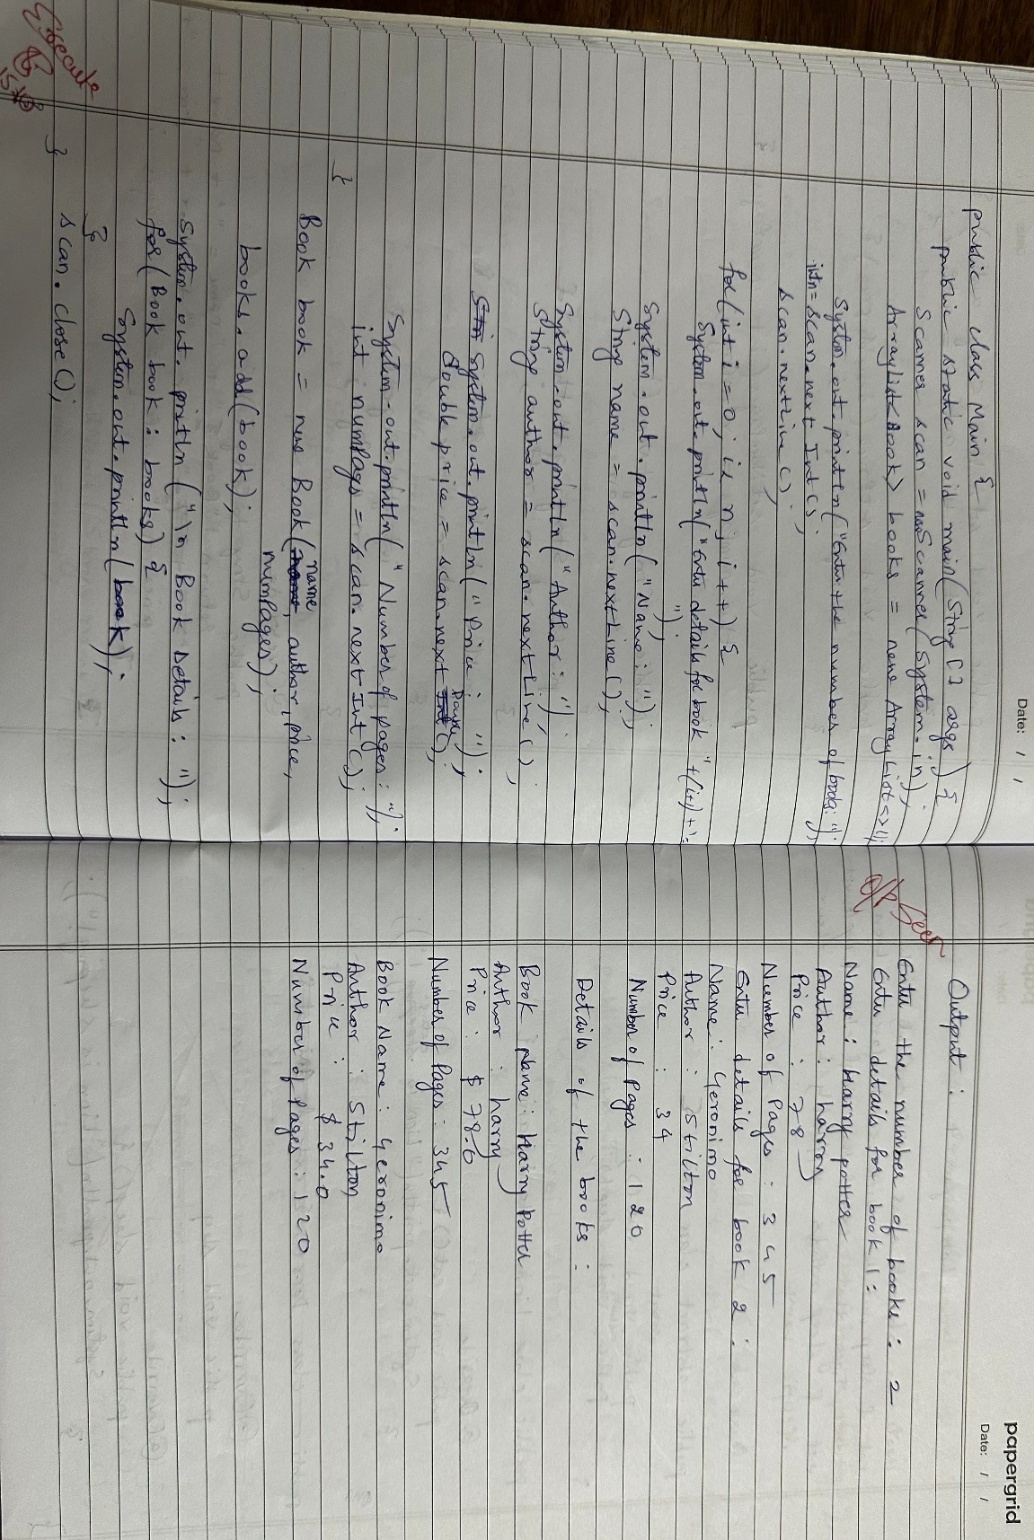 Date: / /
public class Main {
public static void main(String [] args) {
Scanner scan = new Scanner(System.in);
ArrayList<Book> books = new ArrayList<>();
System.out.println("Enter the number of books: ");
int n = scan.nextInt();
scan.nextLine();
for(int i = 0; i < n; i++) {
System.out.println("Enter details for book "+(i+1)+":
");
System.out.println("Name: ");
String name = scan.nextLine();
System.out.println("Author: ");
String author = scan.nextLine();
System.out.println("Price: ");
double price = scan.nextDouble();
System.out.println("Number of pages: ");
int numPages = scan.nextInt();
}
Book book = new Book(name, author, price,
numPages);
books.add(book);
System.out.println("\n Book Details: ");
for(Book book: books) {
System.out.println(book);
}
scan.close();
}
Execute
papergrid
Date: / /
O/P Seen
Output:
Enter the number of books: 2
Enter details for book 1:
Name: Harry potter
Author: harry
Price: 78
Number of Pages: 345
Enter details for book 2:
Name: Geronimo
Author: Stilton
Price: 34
Number of Pages: 120
Details of the books:
Book Name: Harry Potter
Author: harry
Price: $ 78.0
Number of Pages: 345
Book Name: Geronimo
Author: Stilton
Price: $ 34.0
Number of Pages: 120